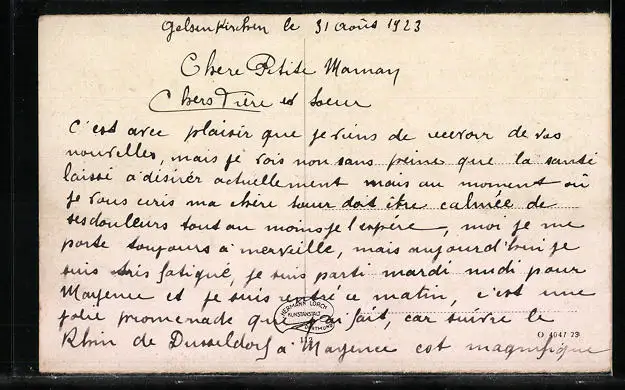 Gelsenkirchen le 31 août 1923
Chere Petite Maman
Chers Frère et Soeur
C'est avec plaisir que je viens de recevoir de vos
nouvelles, mais je vois non sans peine que la santé
laisse a désirer actuellement mais au moment où
je vous ecris ma chère soeur doit être calmée de
ses douleurs tout au moins je l'espère, moi je me
porte toujours a merveille, mais aujourd'hui je
suis très fatigué, je suis parti mardi midi pour
Mayence et je suis rentré ce matin, c'est une
jolie promenade que j'ai fait, car suivre le
Rhin de Dusseldorf a Mayence est magnifique
HERMANN LORCH
KUNSTANSTALT
DORTMUND
112
O 4047 23